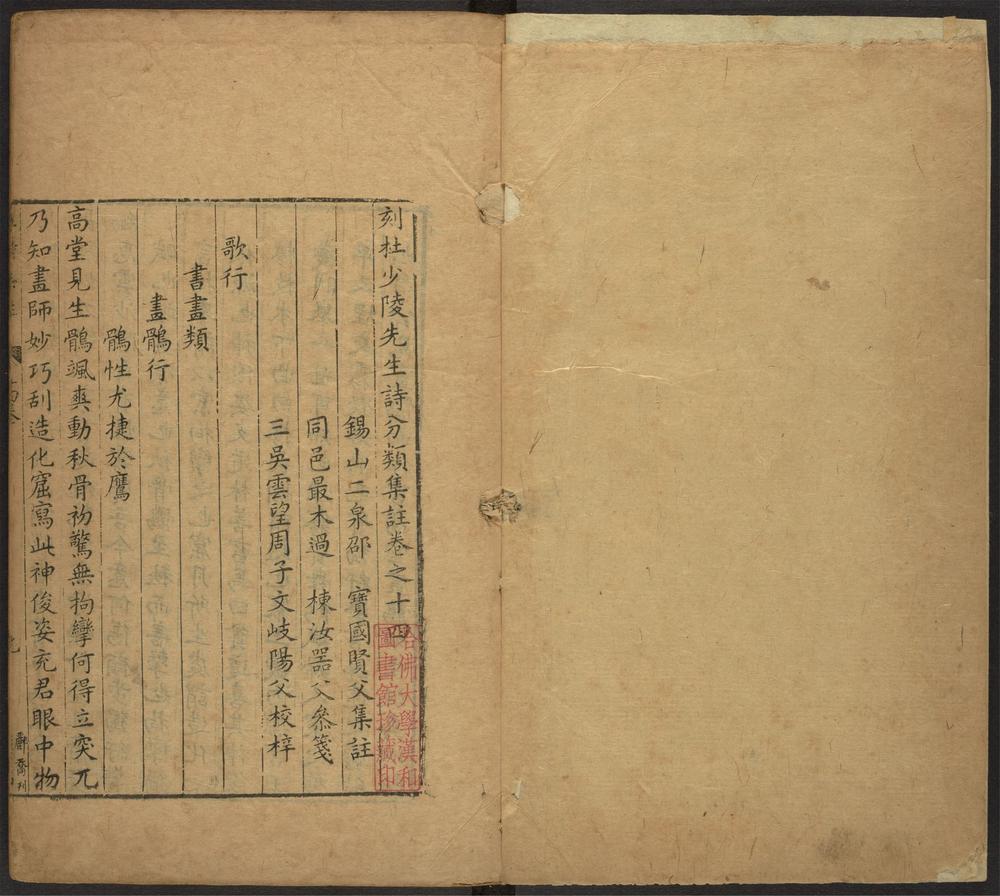 刻杜少陵先生詩分類集註卷之十四
錫山二泉邵 寶國賢父集註
同邑最木過 棟汝器父叅箋
三吳雲望周子文岐陽父校梓
歌行
書畫類
畫鶻行
鶻性尤捷於鷹
高堂見生鶻颯爽動秋骨初驚無拘攣何得立突兀
乃知畫師妙巧刮造化窟寫此神俊姿充君眼中物
哈佛大學漢和
圖書館珍藏印